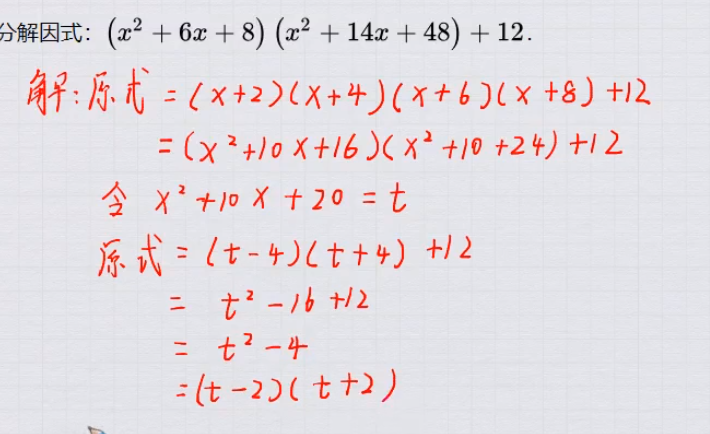 分解因式：(x² + 6x + 8)(x² + 14x + 48) + 12.
解:原式 = (x+2)(x+4)(x+6)(x+8)+12
=(x²+10x+16)(x²+10+24)+12
含 x²+10x+20=t
原式=(t-4)(t+4)+12
= t²-16+12
= t²-4
=(t-2)(t+2)